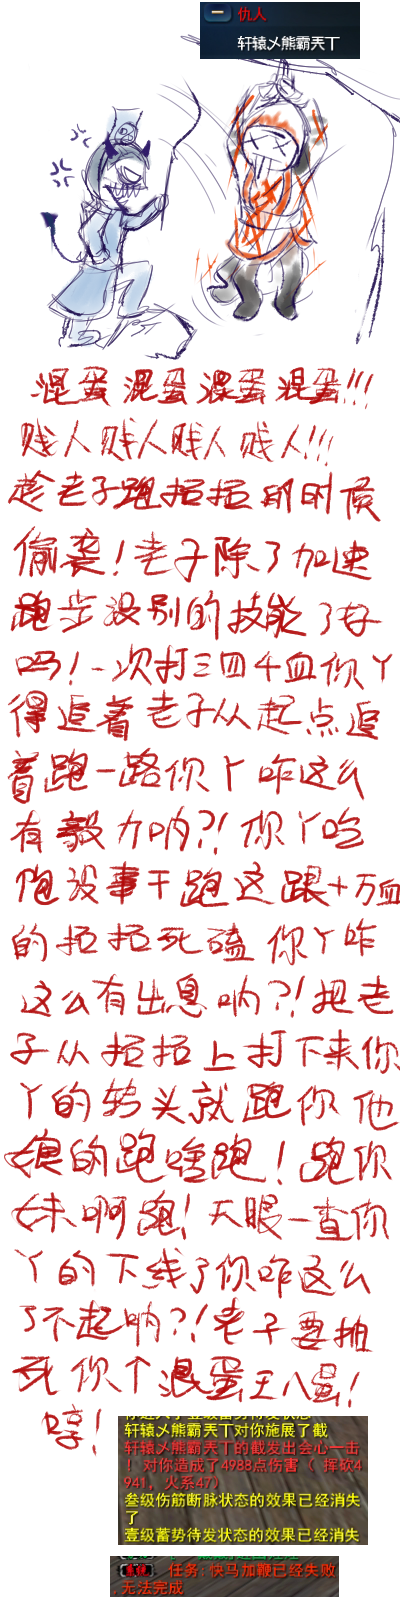 仇人
轩辕乄熊霸天丁
混蛋混蛋混蛋混蛋!!!
贱人贱人贱人贱人!!!
趁老子跑拓拓的时候
偷袭!老子除了加速
跑步没别的技能了好
吗!一次打三四千血你丫
得追着老子从起点追
着跑一路你丫咋这么
有毅力呐?!你丫吃
饱没事干跑这跟十万血
的拓拓死磕你丫咋
这么有出息呐?!把老
子从拓拓上打下来你
丫的转头就跑你他
娘的跑啥跑!跑你
妹啊跑!天眼一查你
丫的下线了你咋这么
了不起呐?!老子要抽
死你个混蛋王八蛋!
哼!
轩辕乄熊霸天丁对你施展了截
轩辕乄熊霸天丁的截发出会心一击
! 对你造成了4988点伤害 ( 挥砍4
941, 火系47)
叁级伤筋断脉状态的效果已经消失
了
壹级蓄势待发状态的效果已经消失
任务: 快马加鞭已经失败
, 无法完成